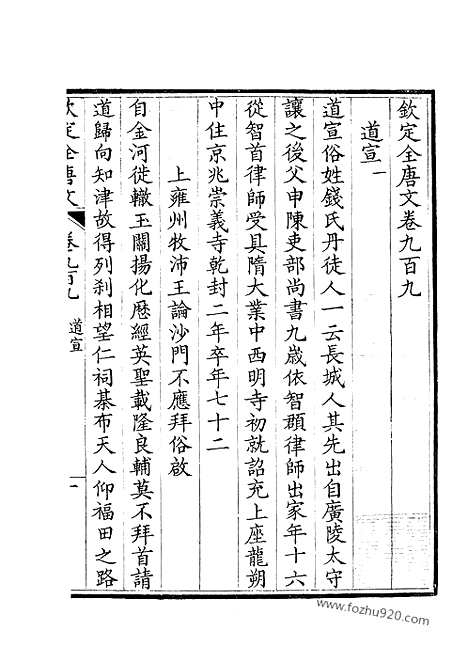 欽定全唐文卷九百九
道宣一
道宣俗姓錢氏丹徒人一云長城人其先出自廣陵太守
讓之後父申陳吏部尚書九歲依智頵律師出家年十六
從智首律師受具隋大業中西明寺初就詔充上座龍朔
中住京兆崇義寺乾封二年卒年七十二
上雍州牧沛王論沙門不應拜俗啟
自金河徙轍玉關揚化歷經英聖載隆良輔莫不拜首請
道歸向知津故得列刹相望仁祠棊布天人仰福田之路
欽定全唐文
卷九百九
道宣
一
www.fozhu920.com